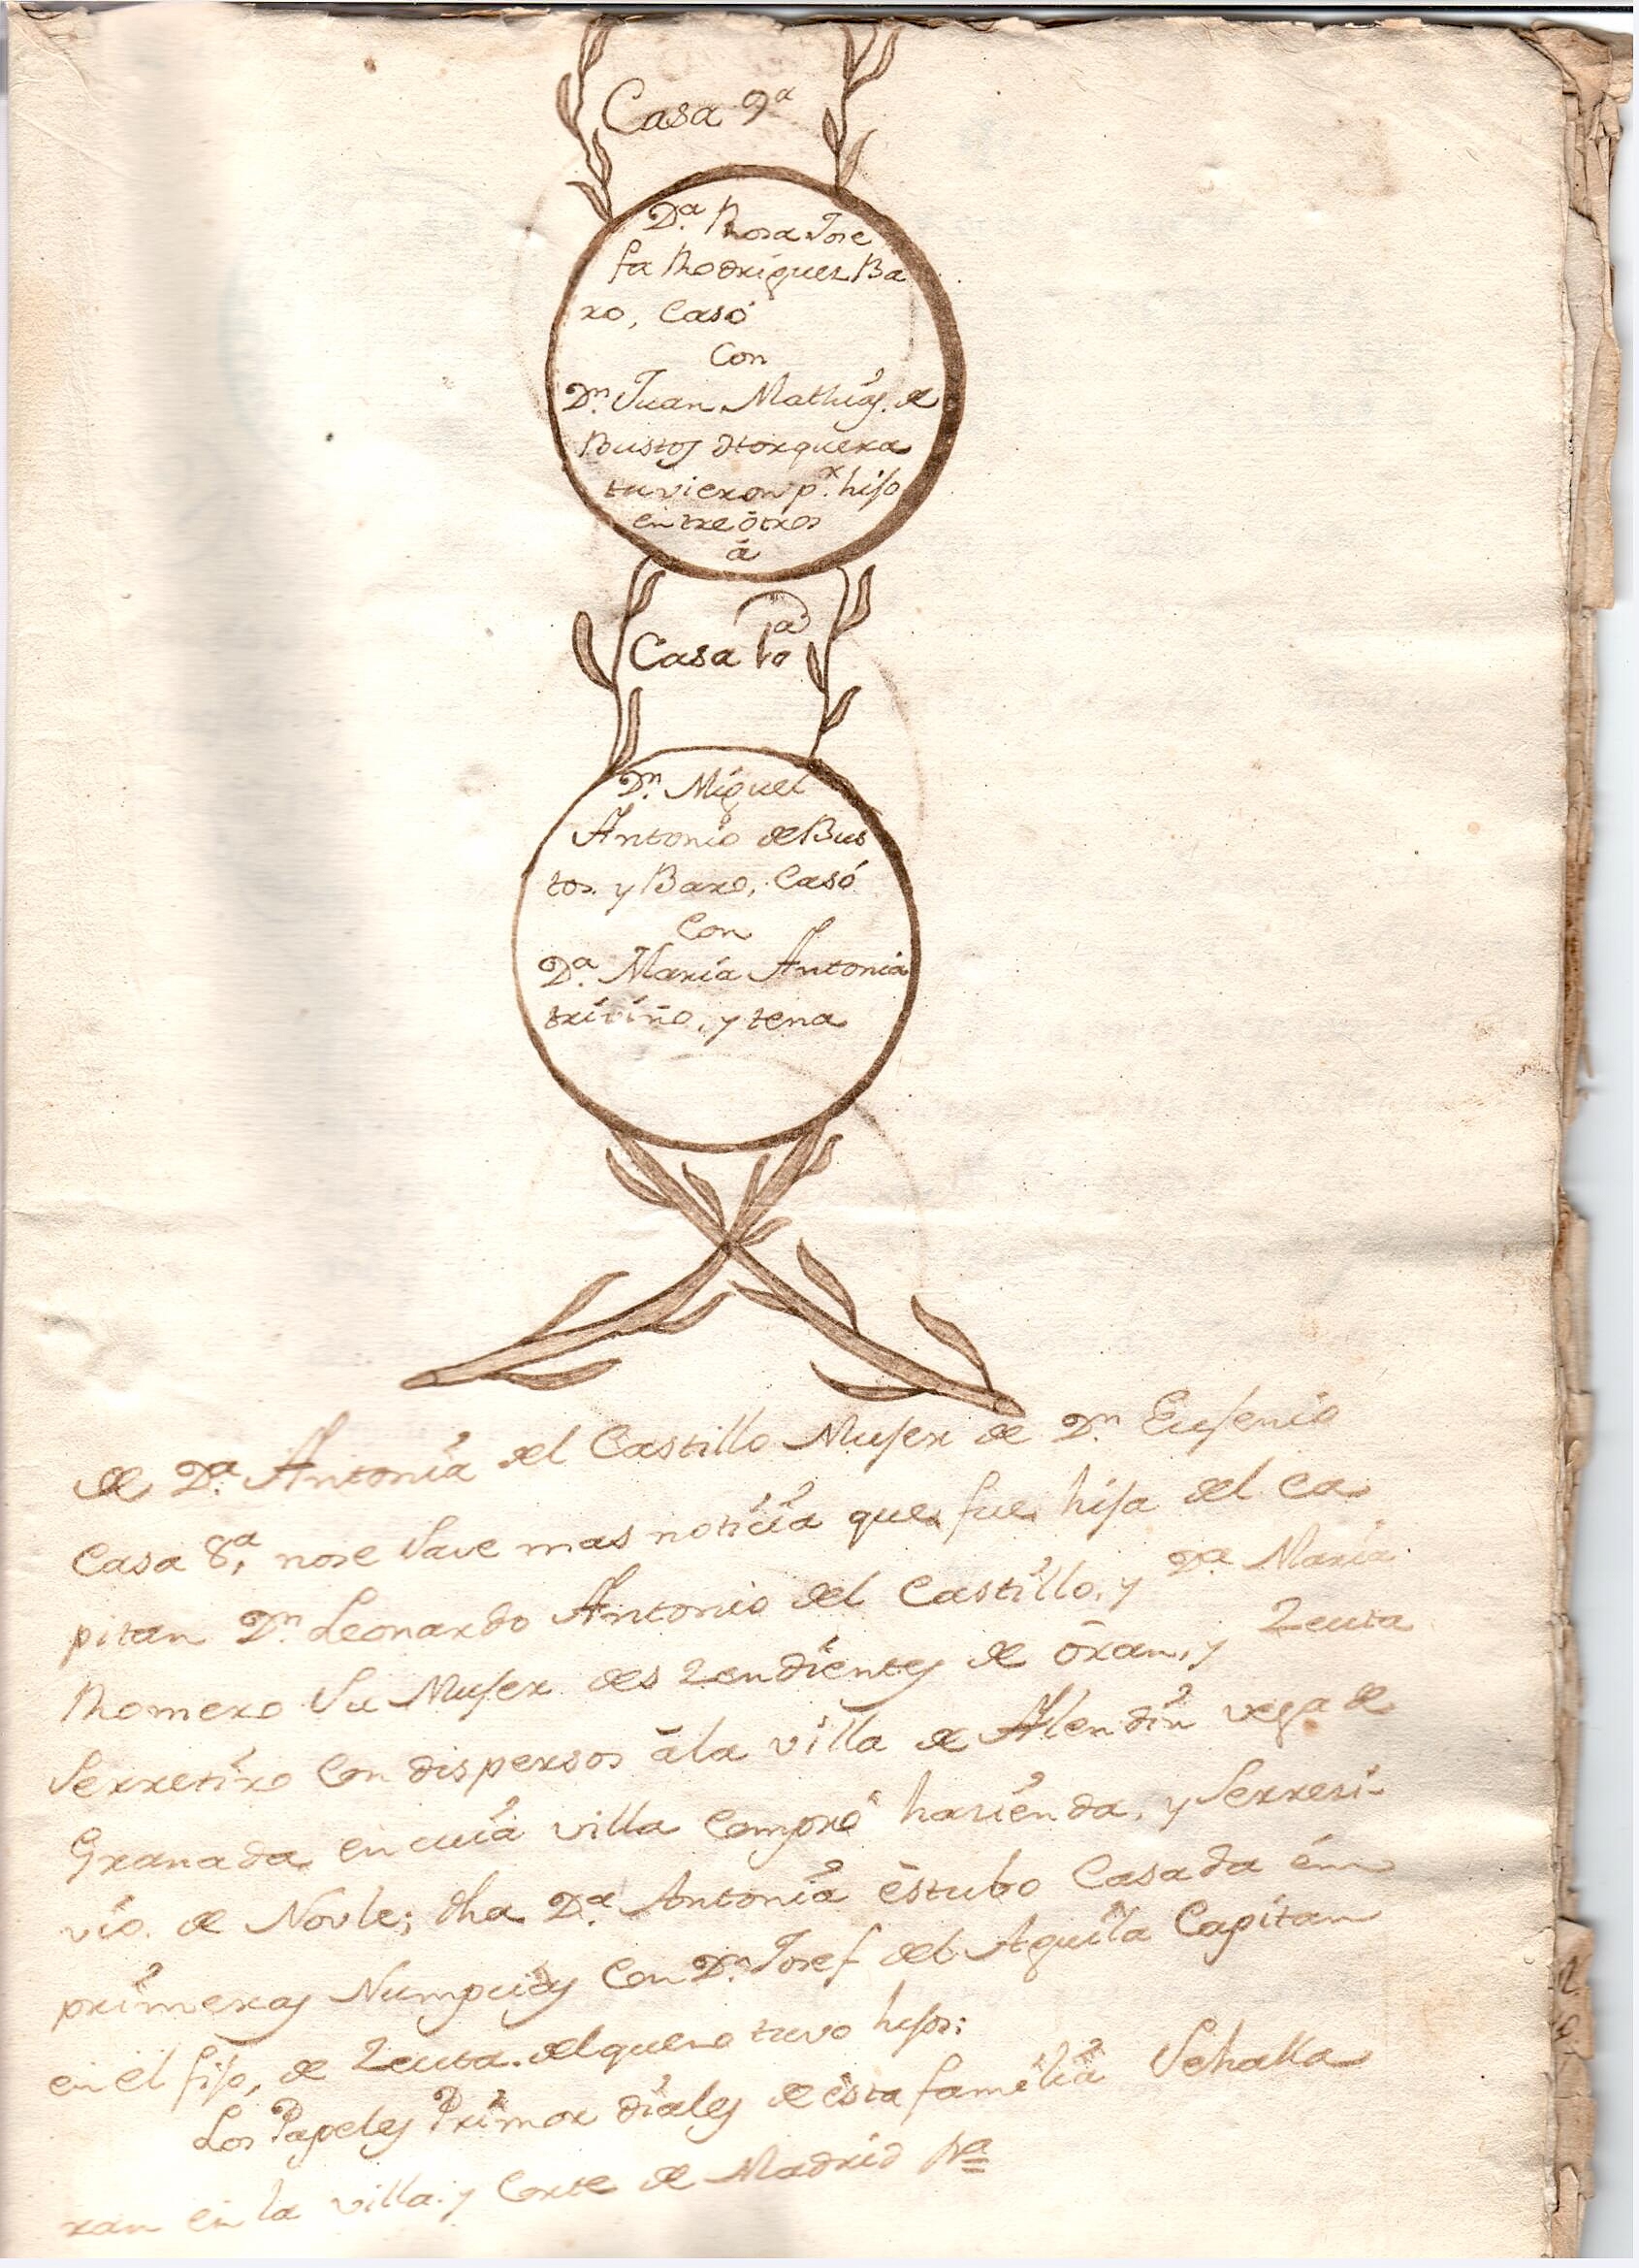 Casa 9ª
Dª. Rosa Jose
fa Rodriguez Ba
ro, Casó
Con
Dn. Juan Mathias de
Bustos Jtorquera
tuvieron pr. hijo
entre ótros
á
Casa 10ª
Dn. Miguel
Antonio de Bus
tos y Baro, Casó
Con
Dª. Maria Antonia
triviño, y tena
de Dª. Antonia del Castillo Mujer de Dn. Eujenio
Casa 8ª, nose Save mas noticia que fue hija del Ca
pitan Dn. Leonardo Antonio del Castillo, y Dª. Maria
Romero Su Mujer deszendientes de óran, y Zeuta
Serretiro Con dispersos á la villa de Alendin vega de
Granada en cuia villa Compró hazienda, y Serreci-
vio de Noble; dha Dª. Antonia éstubo Casada én
primeras Numpcias Con Dn. Josef del Aguila Capitan
en el fijo, de Zeuta. del queno tuvo hijos;
Los Papeles Primordiales de ésta familia Sehalla
ran en la villa y Corte de Madrid